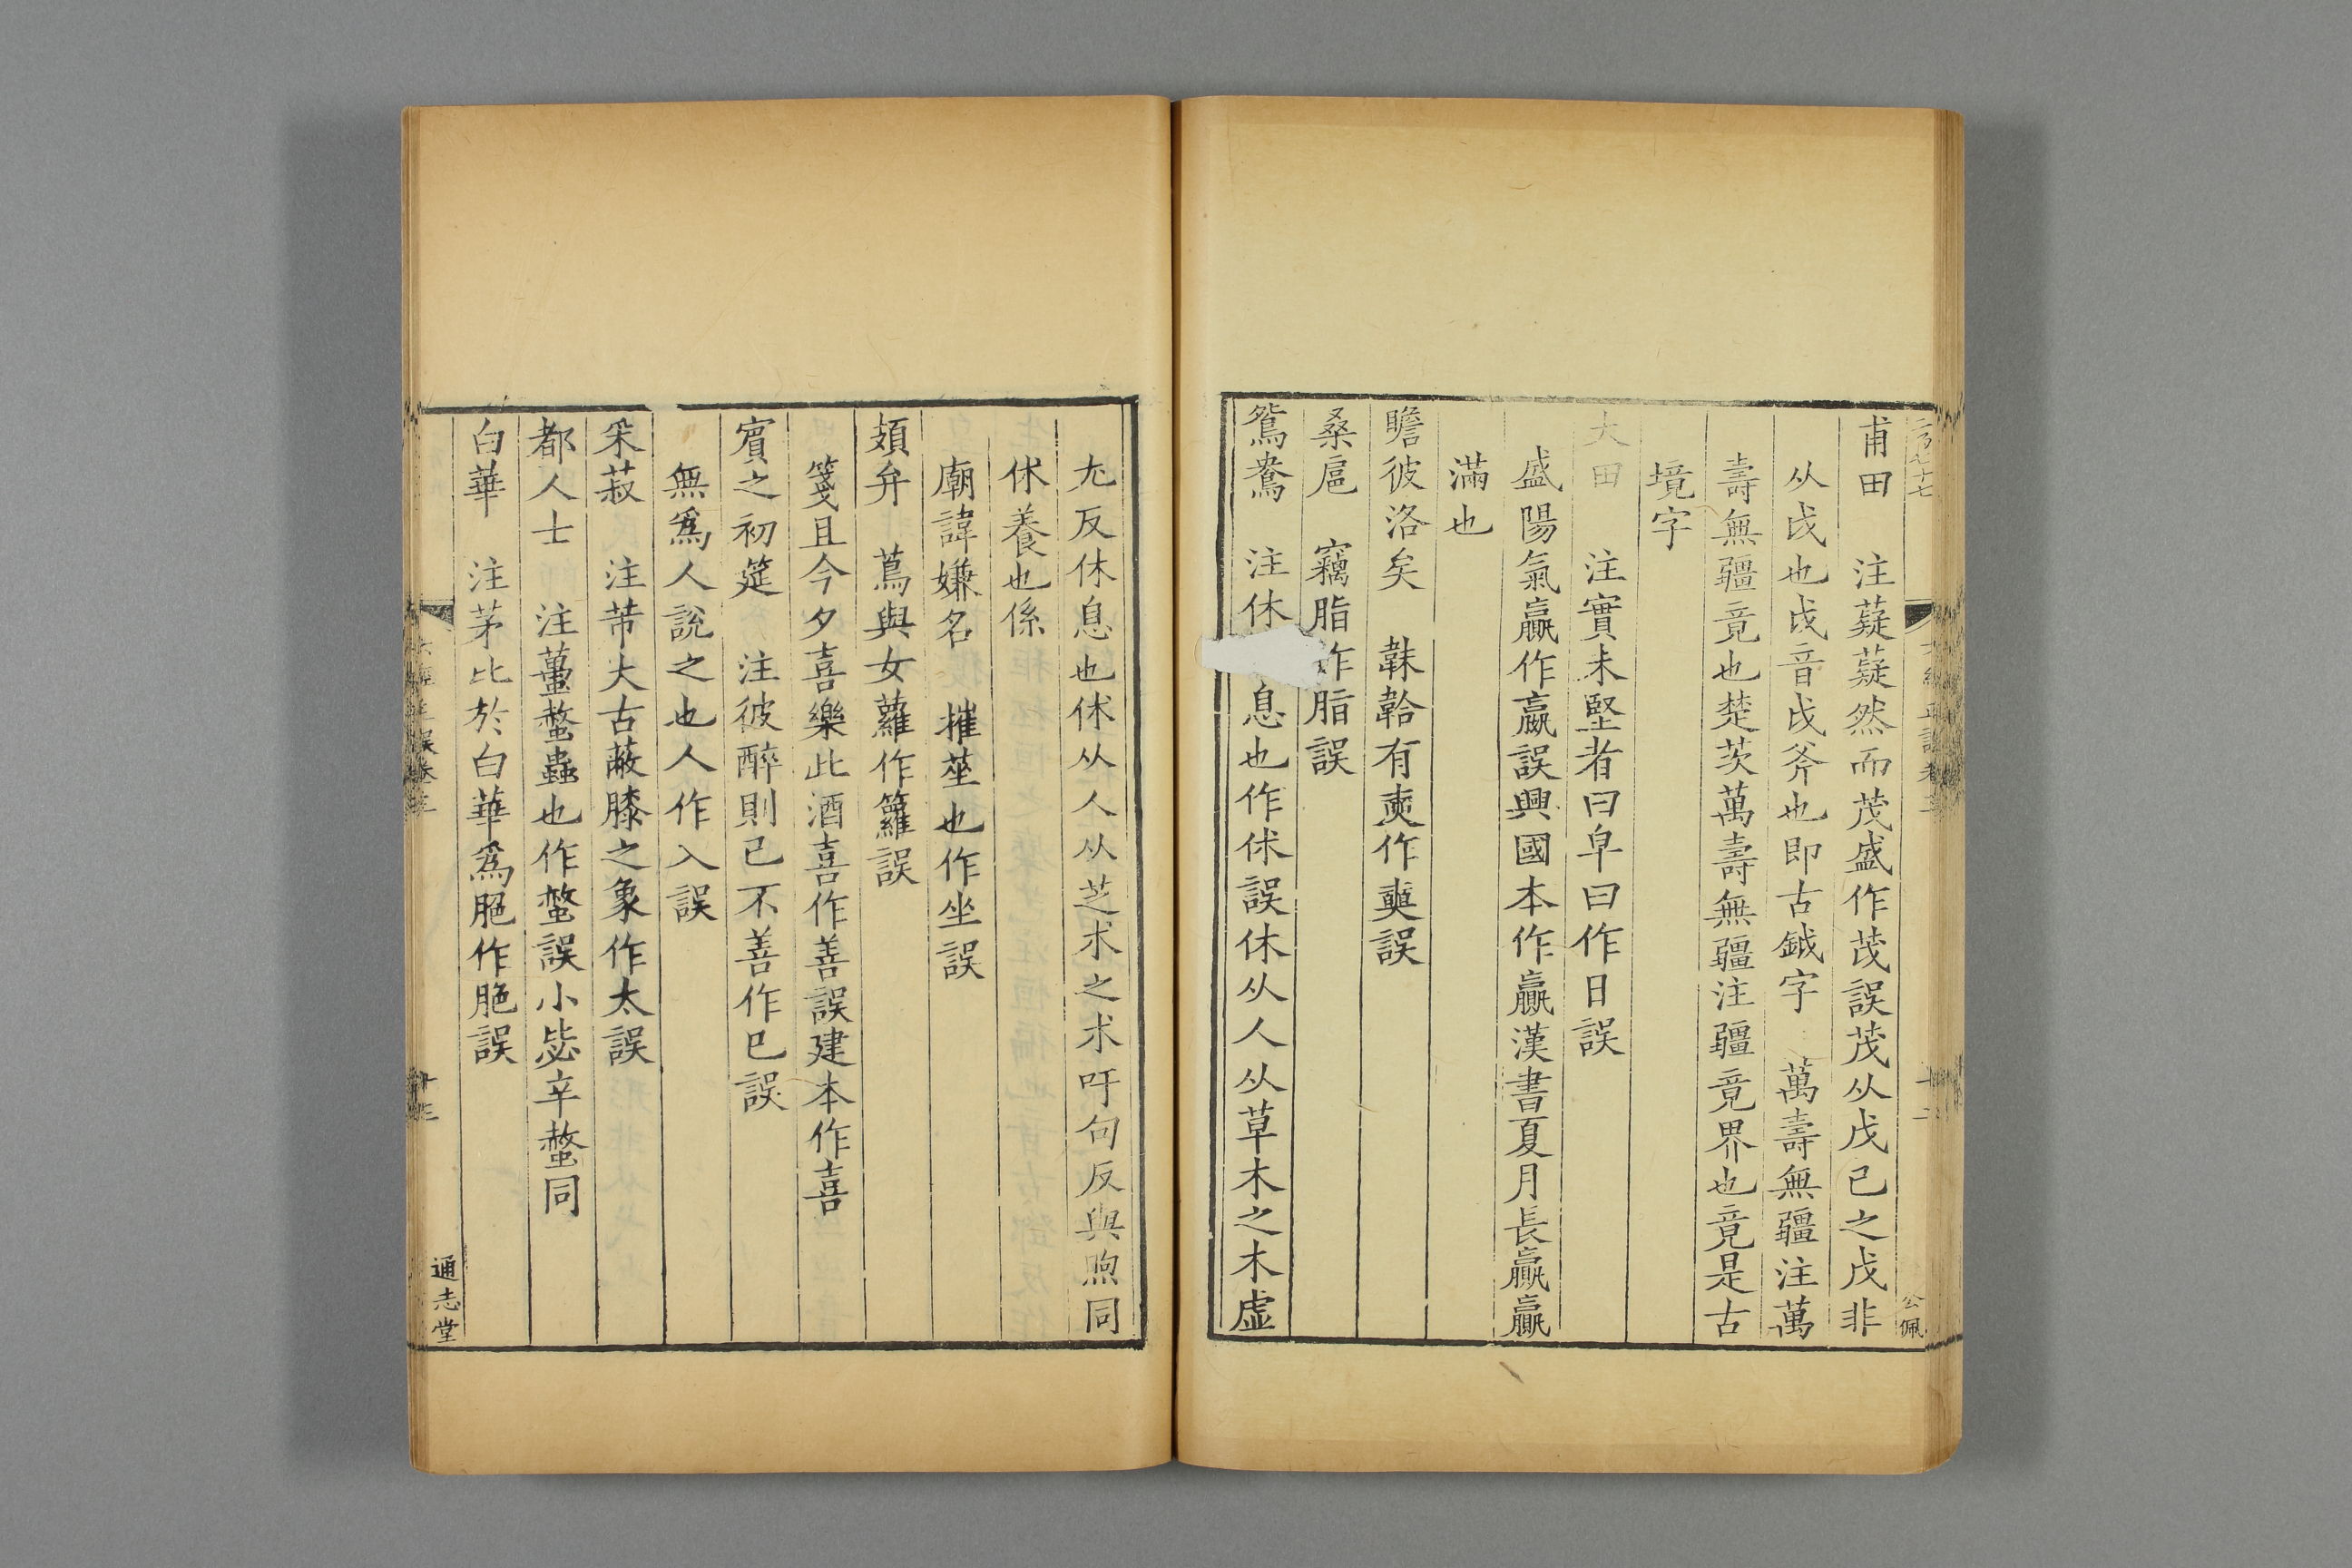 甫田　注薿薿然而茂盛作茂誤茂从戊己之戊非
从戉也戉音戉斧也即古鉞字　萬壽無疆注萬
壽無疆竟也楚茨萬壽無疆注疆竟界也竟是古
境字
大田　注實未堅者曰皁曰作日誤
盛陽氣贏作嬴誤興國本作贏漢書夏月長贏贏
滿也
瞻彼洛矣　韎韐有奭作奭誤
桑扈　竊脂作脂誤
鴛鴦　注休息也作㤜誤休从人从草木之木虛
尤反休息也㤜从人从芝术之术吁句反與煦同
㤜養也係
廟諱嫌名　摧莝也作坐誤
頍弁　蔦與女蘿作籮誤
箋且今夕喜樂此酒喜作善誤建本作喜
賓之初筵　注彼醉則已不善作巳誤
無爲人說之也人作入誤
采菽　注芾大古蔽膝之象作太誤
都人士　注蠆螫蟲也作螫誤小毖辛螫同
白華　注茅比於白華爲脆作脃誤
通志堂
公佩